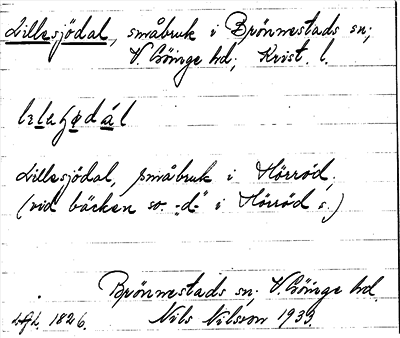 Lillesjödal, småbruk i Brönnestads sn;
V. Göinge hd; Krist. l.
Lillesjödal, småbruk i Hörröd;
(vid bäcken so. "d" i Hörröd s.)
Brönnestads sn; V. Göinge hd.
Nils Nilsson 1933.
1826.